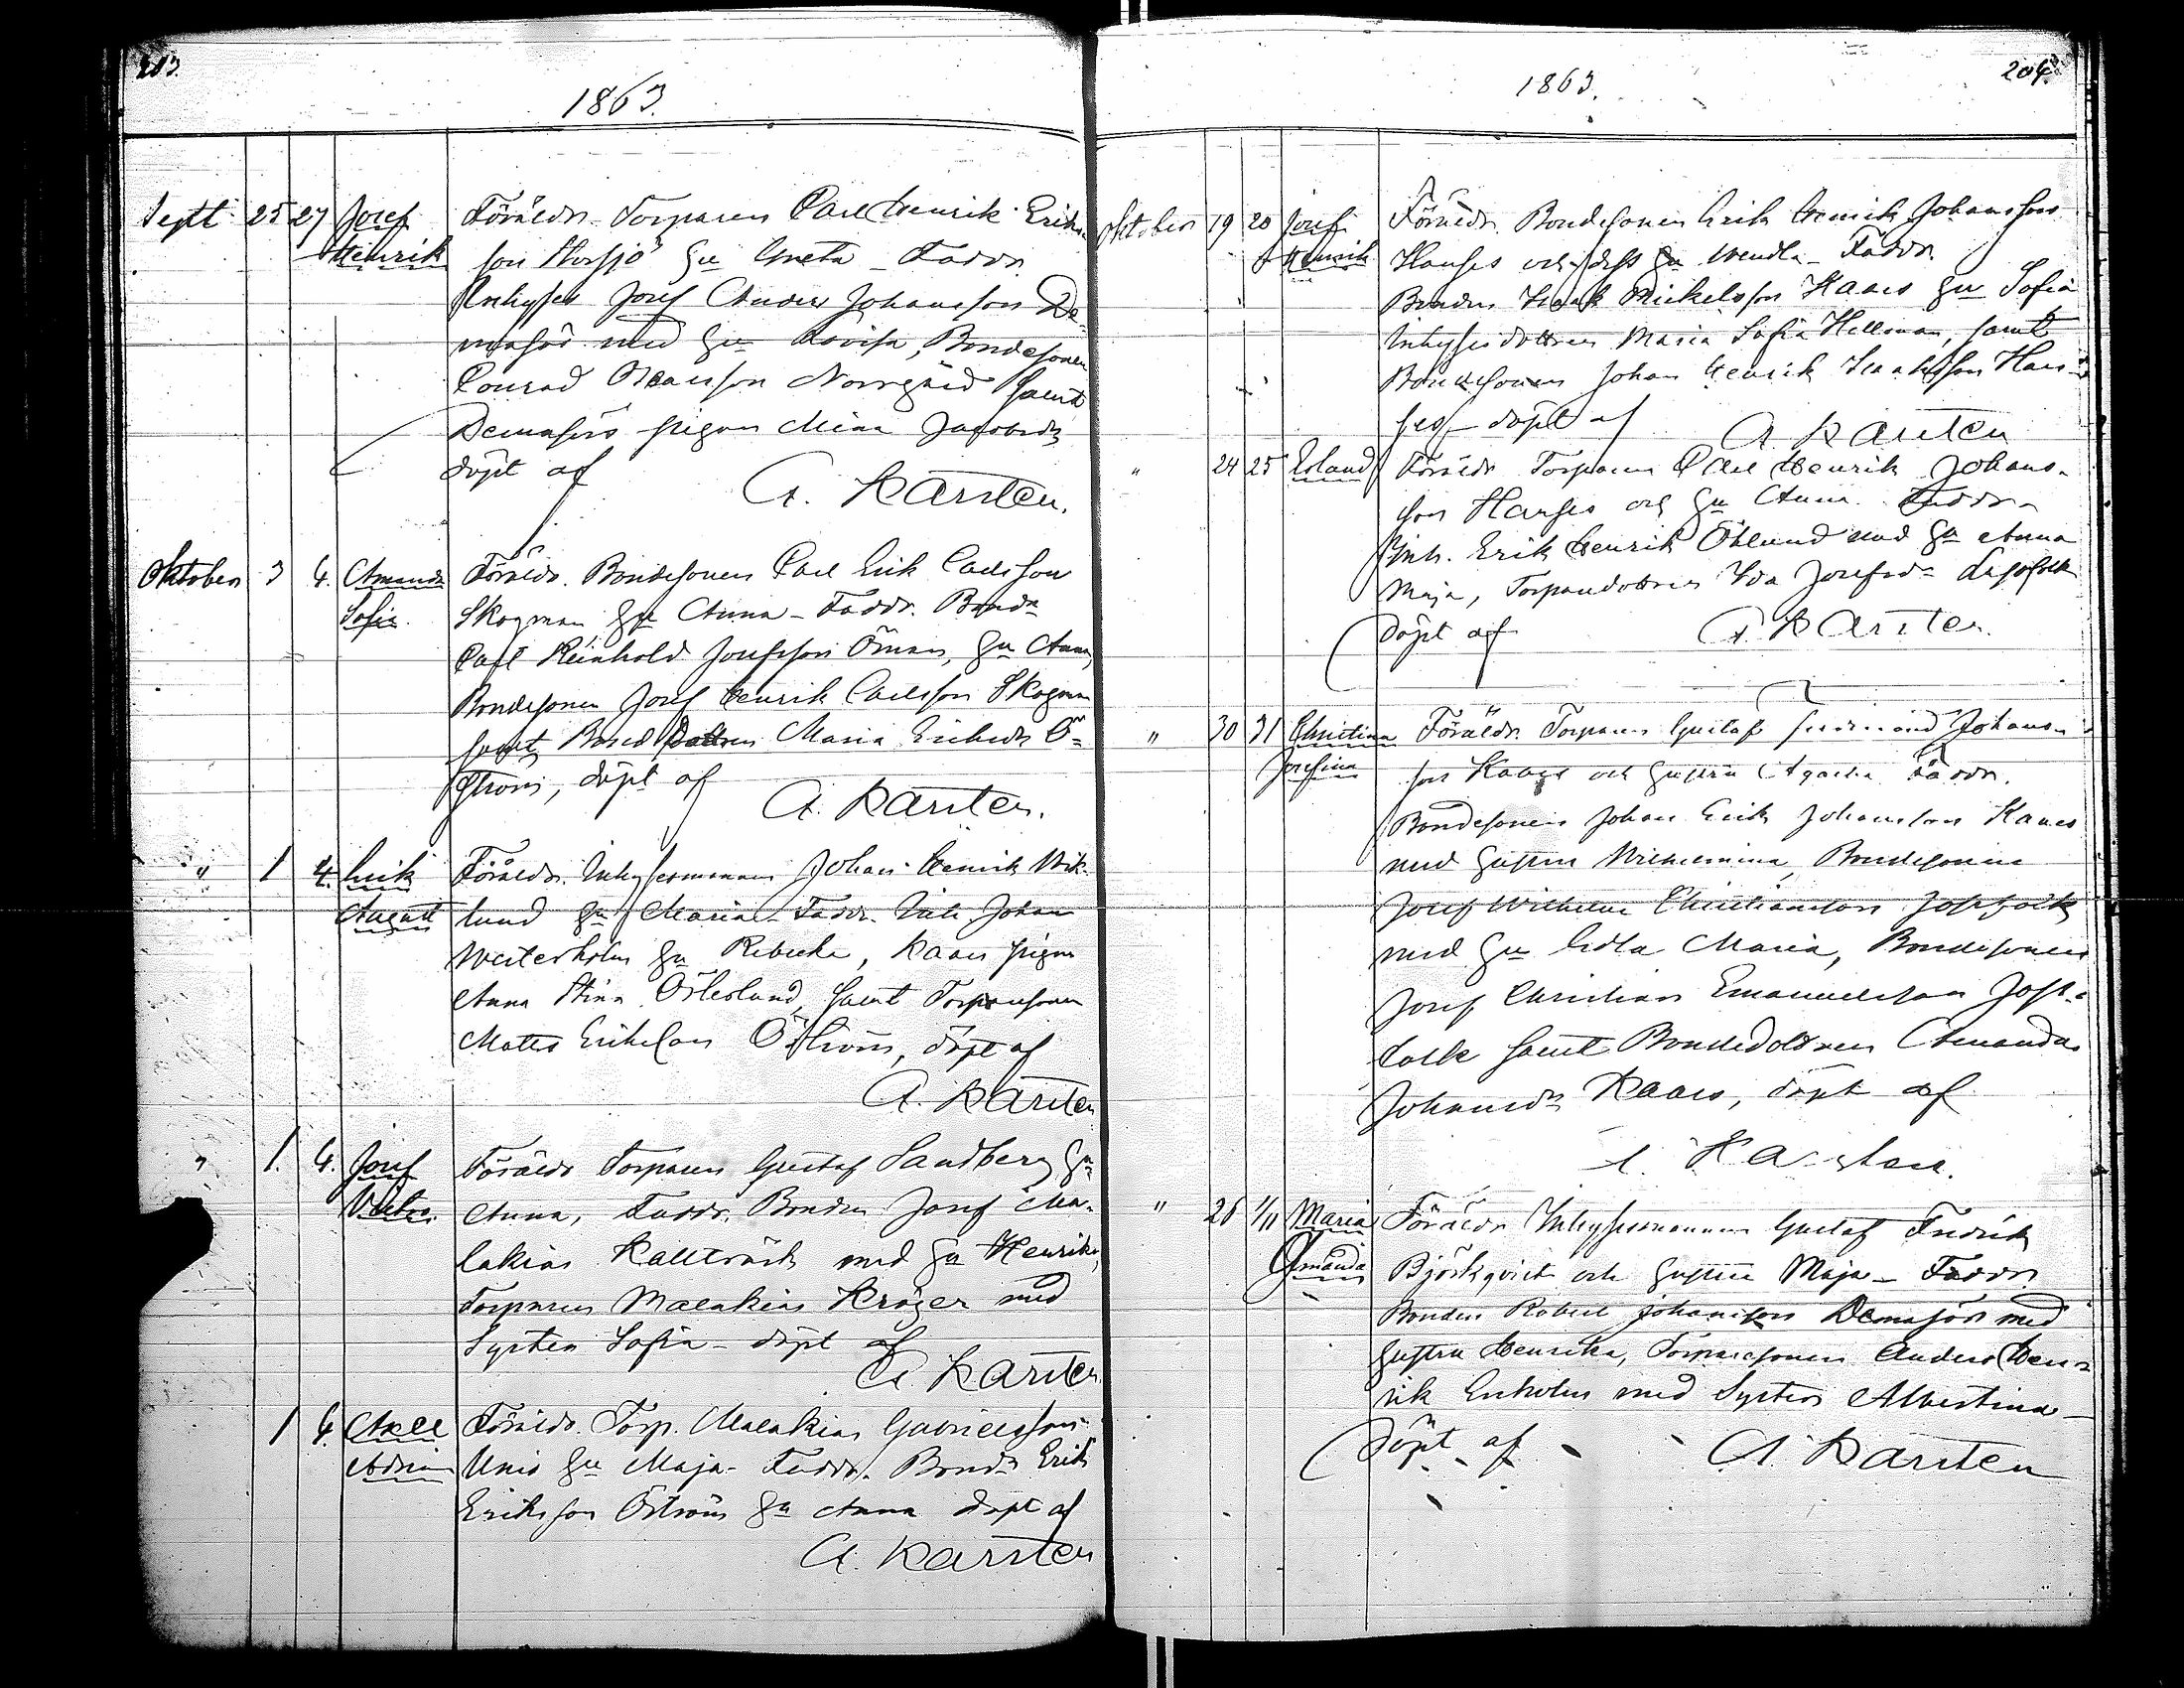 203.
1863.
Sept 25 27 Josef Föräldr. Torparen Carl Henrik Eriks-
Henrik son Storsjö hu Greta - Faddr.
Inhyses Josef Anders Johansson De-
masör med hu Lovisa, Bondesonen
Conrad Norrgård samt
Demasörs pigan Mina Jacobsdr
döpt af
A. Karsten.
Oktober 3 4. Amanda Föräldr. Bondesonen Carl Erik Carlsson
Sofia. Skogman hu Anna - Faddr. Bond
Carl Reinhold Josefsson Öman, hu Anna,
Bondesonen Josef Henrik Carlsson Skogman
samt Bonddottren Maria Eriksdr Ö-
ström, döpt af
A. Karsten.
" 1 4. Erik Föräldr. Inhysesmannen Johan Henrik Wik-
August lund hu Maria - Faddr. Johan
Westerholm hu Rebecka, Kaars pigan
Anna Stina Österlund, samt Torparesonen
Matts Eriksson Öström, döpt af
A. Karsten
" 1. 4. Josef Föräldr Torparen Gustaf Sandberg hu
Anna, Faddr. Bonden Josef Ma-
lakias Kallträsk med hu Henrika,
Torparen Malakias Kröger med
Syster Sofia - döpt af
A. Karsten
1 4. Axel Föräldr. Torp. Malakias Gabrielsson
Unis hu Maja - Faddr. Bond Erik
Eriksson Öström hu Anna döpt af
A. Karsten
204.
1863.
Oktober 19 20 Josef Föräldr. Bondesonen Erik Henrik Johansson
Henrik Hanses och dess hu Wendla - Faddr.
Bonden Isaak Mickelsson Kaars hu Sofia
Inhysesdottren Maria Sofia Hellman, samt
Bondesonen Johan Henrik Isaksson Han-
ses döpt af
A. Karsten
" 24 25 Erland Föräldr Torparen Carl Henrik Johans-
son Hanses och hu Anna. Faddr -
Inh. Erik Henrik Öhlund med hu Anna
Maja, Torparedottren Ida Josefsdr
döpt af
A. Karsten.
" 30 31 Christina Föräldr. Torparen Gustaf Ferdinand Johans-
Josefina son Kaars och hustru Agatha Faddr.
Bondesonen Johan Erik Johansson Kaars
med hustru Wilhelmina, Bondesonen
Josef Wilhelm Christiansson Jossfolk
med hu Edla Maria, Bondesonen
Josef Christian Emanuelsson Joss-
folk samt Bondedottren Amanda
Johansdr Kaars, döpt af
A. Karsten.
" 26 1/11 Maria Föräldr Inhysesmannen Gustaf Fredrik
Amanda Björkqvist och hustru Maja - Faddr
Bonden Robert Johansson Demasör med
hustru Henrika, Torparesonen Anders Hen-
rik Enholm med Syster Albertina -
döpt af
A. Karsten